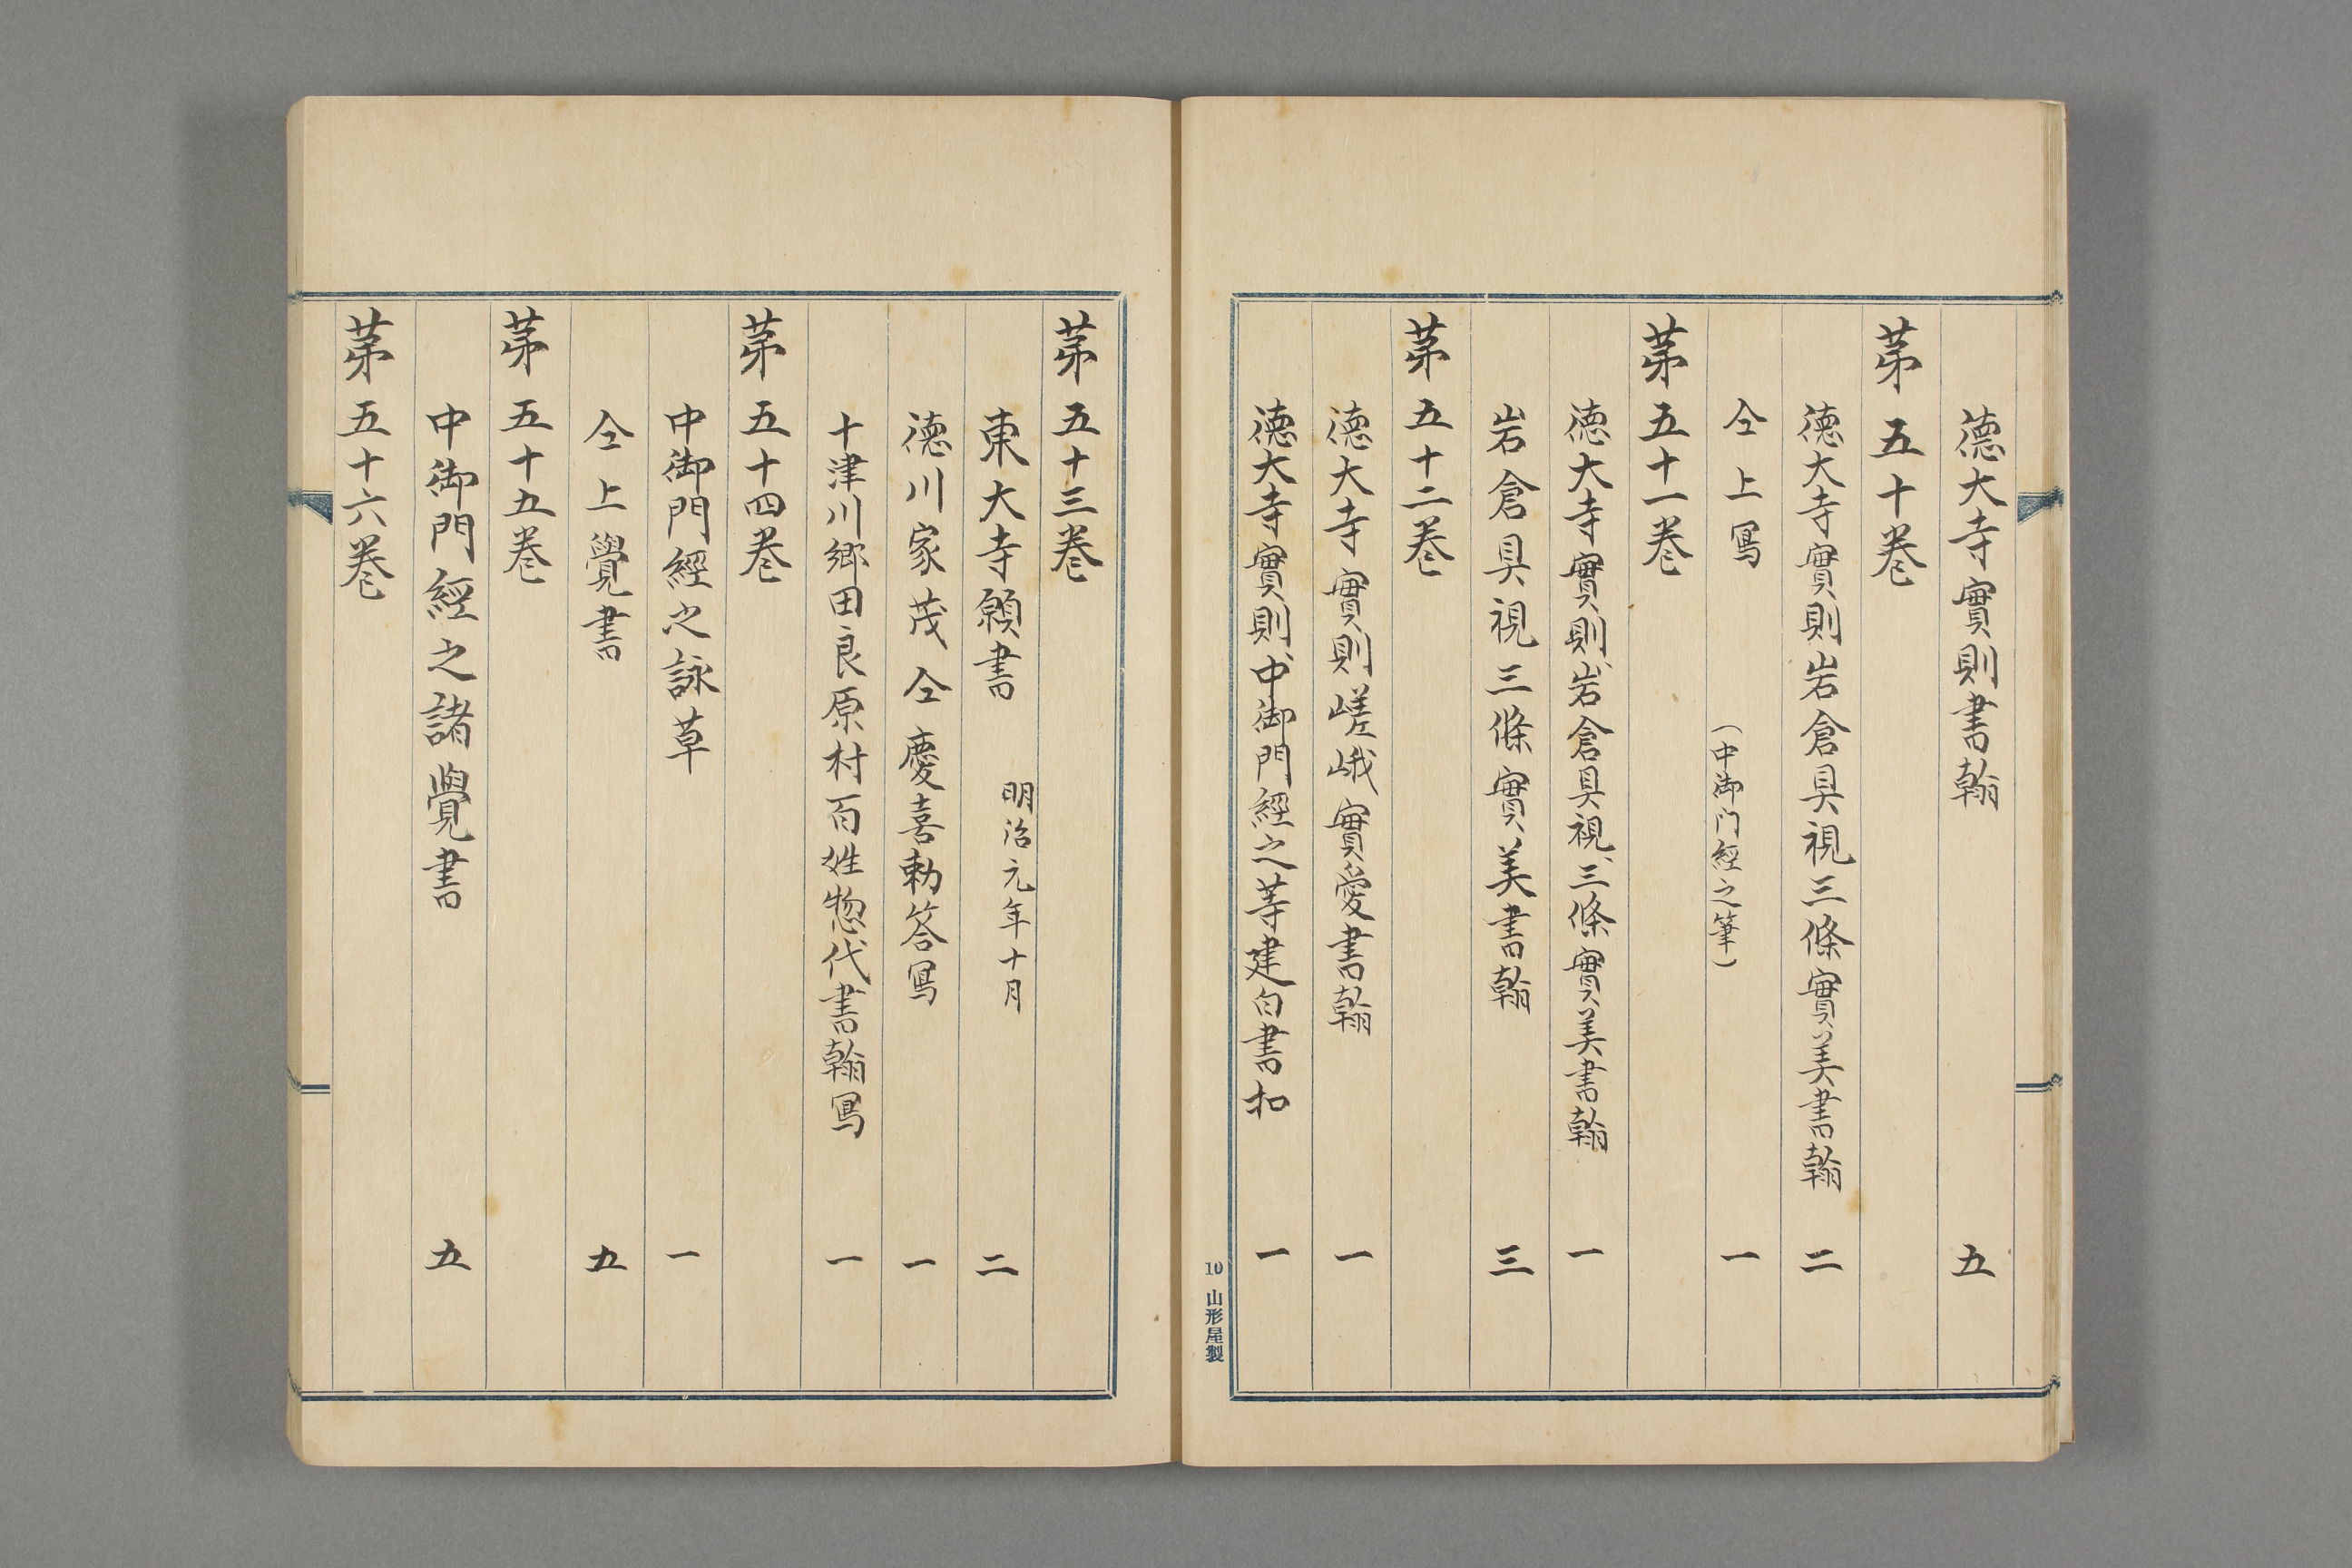 德大寺實則書翰 五
苐五十巻
徳大寺實則岩倉具視三條實美書翰 二
仝上寫 (中御门經之筆) 一
苐五十一巻
徳大寺實則、岩倉具視、三條實美書翰 一
岩倉具視三條實美書翰 三
苐五十二巻
徳大寺實則嵯峨實愛書翰 一
徳大寺實則、中御門經之等建白書扣 一
10 山形屋製
苐五十三巻
東大寺願書 明治元年十月 二
徳川家茂仝慶喜勅答寫 一
十津川郷田良原村百姓惣代書翰寫 一
苐五十四巻
中御門經之詠草 一
仝上覺書 五
苐五十五巻
中御門經之諸覺書 五
苐五十六巻